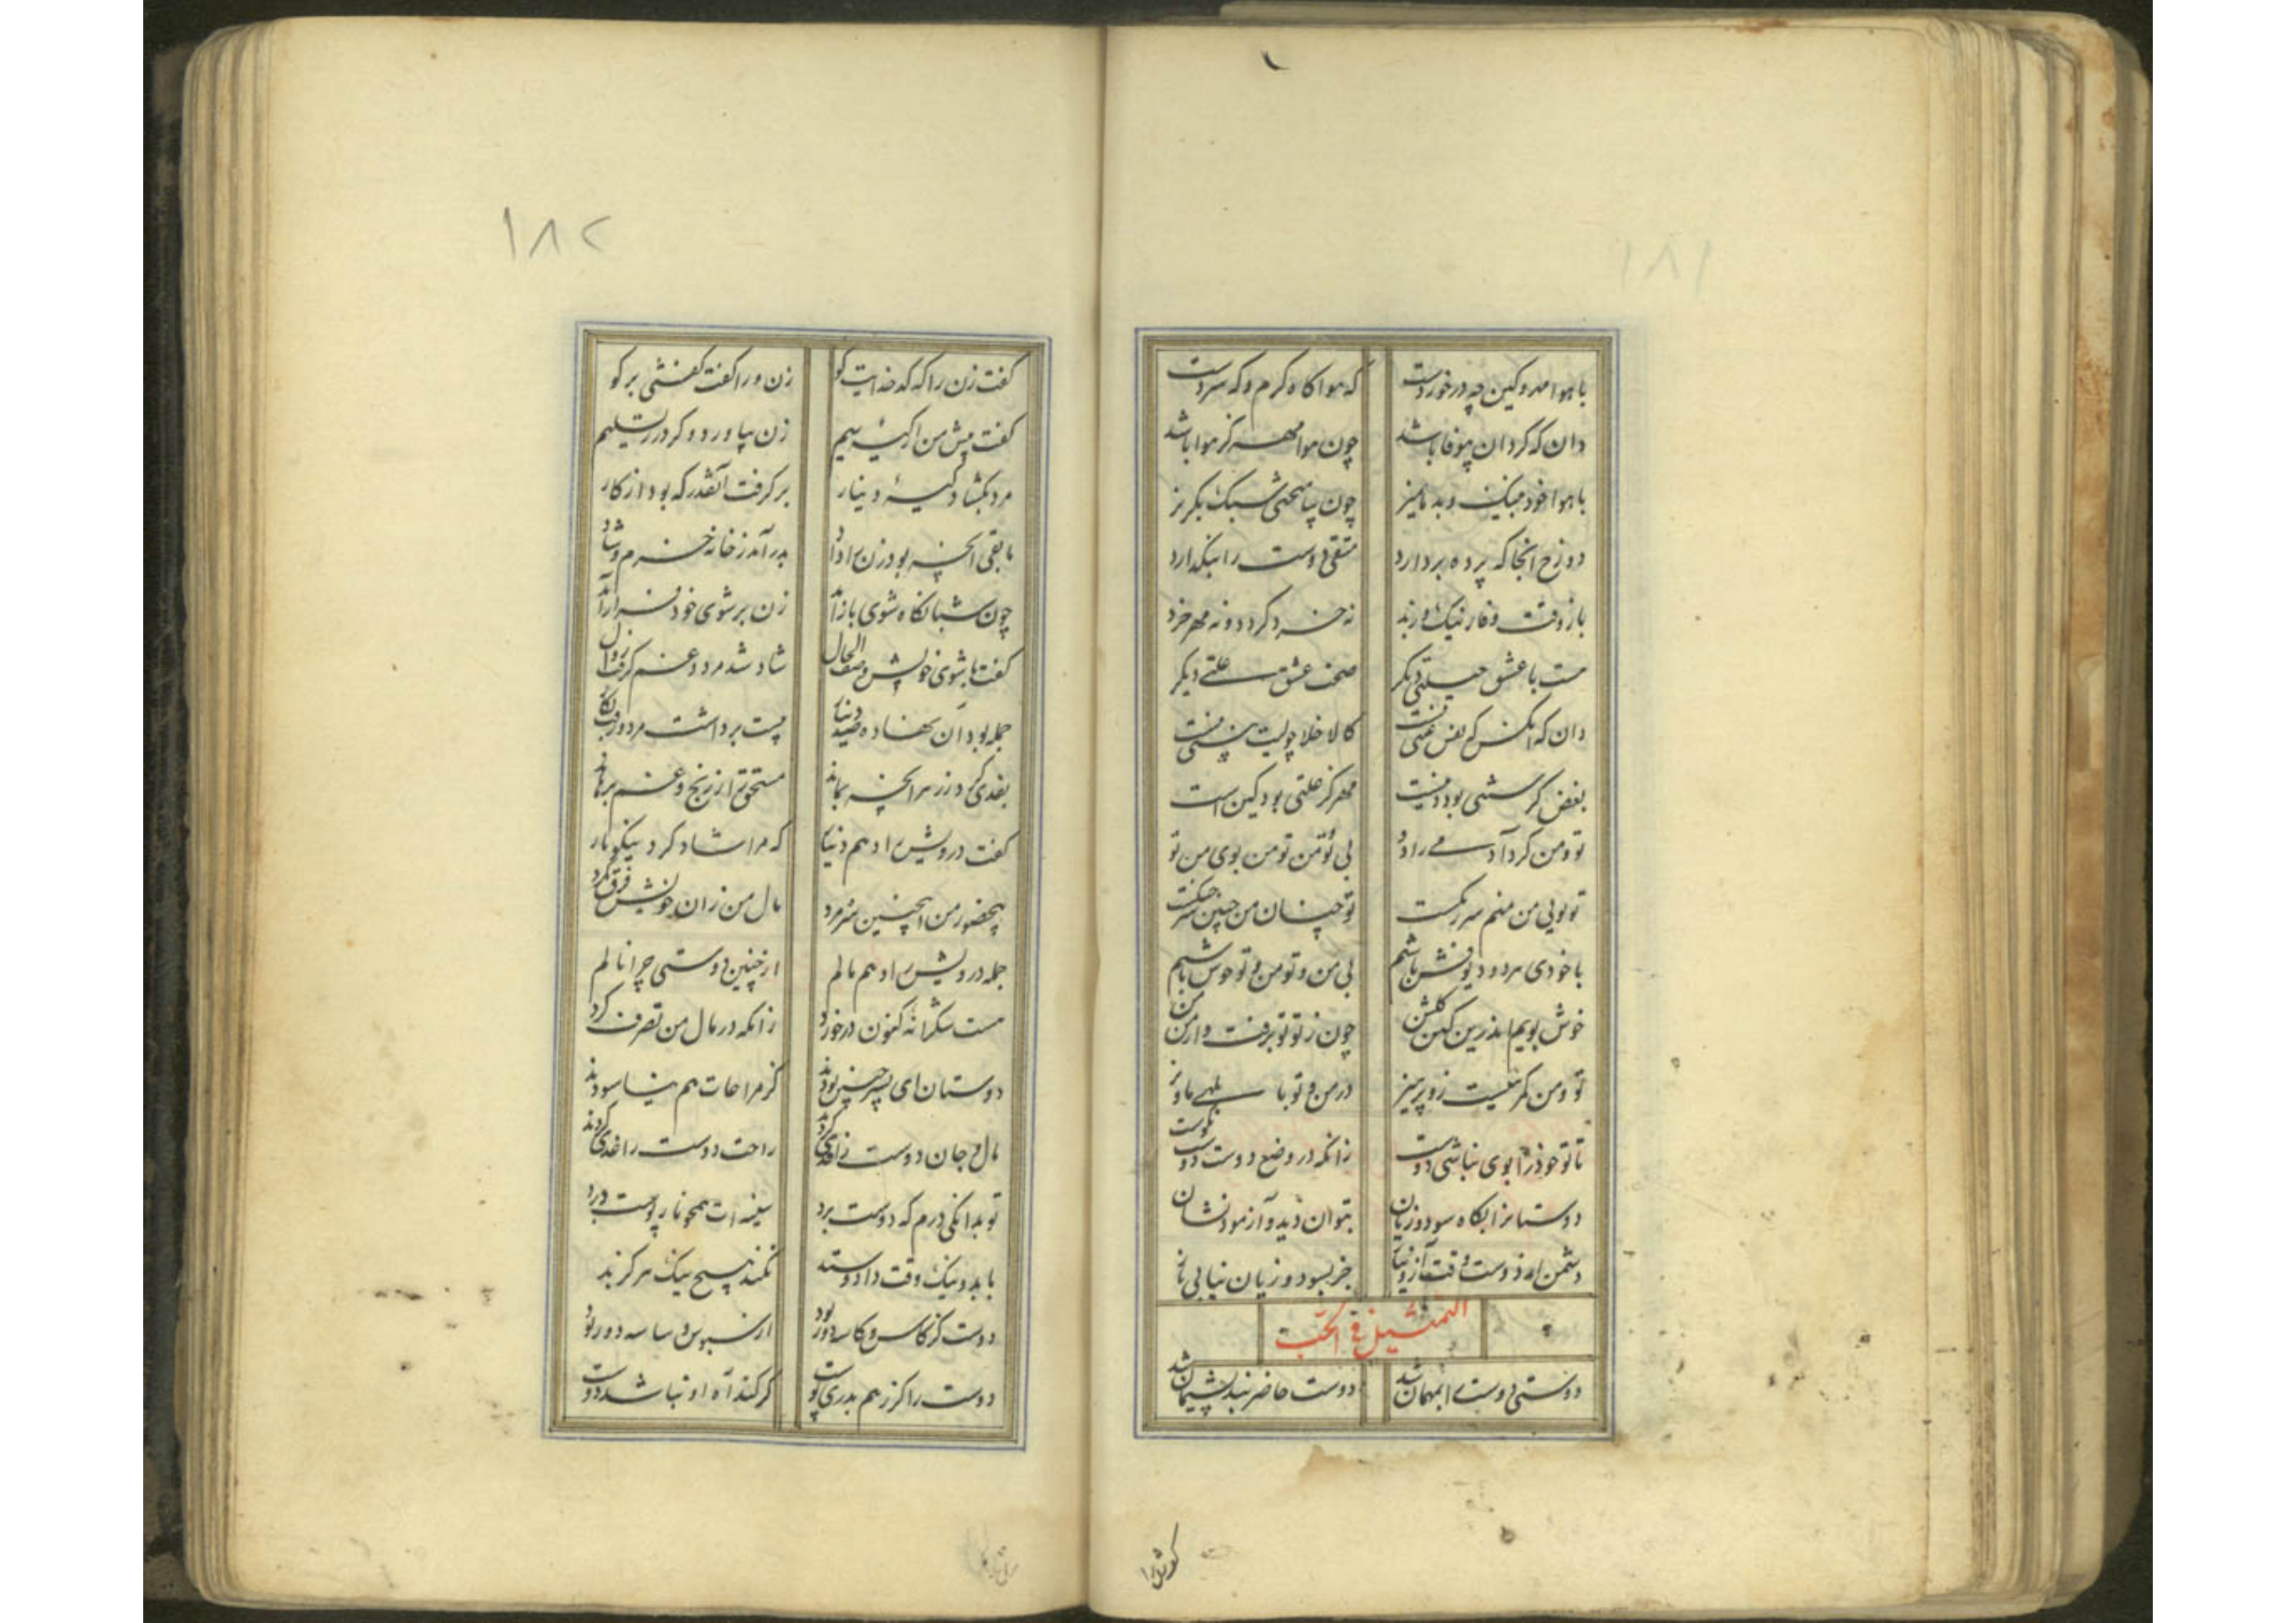 ۱۸۱
با هوا مهر و کین چه در خوردست که هوا گاه گرم و گه سردست
دان که گردان بیوفا باشد چون هوا مهر کز هوا باشد
با هوا خود میکن و بد مامیز چون بیامیختی سبک بگریز
دوزخ آنجا که پرده بردارد متقی دوست را بنگذارد
نه خرد گردد و نه مهر خرد
هست با عشق دیگر صحت عشق علتی دیگر
دان که آنکس که
بغض کز بود دینست مهر کز علتی بود کین است
تو و من کرد آدمی را دو بی تو من تو من بوی من تو
تو بوی من منم سر تو چنان من چنین
با خودی هر دو دیوفش باشیم بی من و تو من و تو خوش باشیم
خوش بویم اندرین کهن گلشن چون ز تو تو برفت و از من من
تو و من گر نیست زو پرهیز در من و تو
تا تو خود را بوی نباشی دوست زانکه در وضع دوست دوست نکوست
دوستانرا بگاه سود و زیان بتوان دید و آزمود نشان
دشمن از دوست وقت آز و نیاز جز بسود و زیان نیابی باز
التمثیل فی الحب
دوستی دوست را بمهمان شد دوست حاضر نبد پشیمان شد
۱۸۲
گفت زن را که کدخدایت کو زن ورا گفت گفتنی برگو
گفت پیش من آر کیسهٔ سیم زن بیاورد و کرد زر تسلیم
مرد بگشاد کیسهٔ دینار برگرفت آنقدر که بود از کار
مابقی آنچه بود زن را داد بدر آمد ز خانه خرم و شاد
چون شبانگاه شوی باز آمد زن بر شوی خود فراز آمد
گفت با شوی خویش وصف الحال شاد شد مرد و غم گرفت زوال
جمله بود آن نهاده صد دینار بیست برداشت مرد وقت بکار
بفدی کرد زر هر آنچه بماند مستحق را ز رنج و غم برهاند
گفت درویش را دهم دینار که مرا شاد کرد نیکو یار
بحضور من اینچنین سره مرد مال من زان خویش فرق نکرد
جمله درویش را دهم مالم از چنین دوستی چرا نالم
هست شکرانه کنون در خورد زانکه در مال من تصرف کرد
دوستان ای پسر چنین بودند کز مراعات هم نیاسودند
مال و جان دوست را فدی کردند راحت دوست را فدی کردند
تو بدانگی درم که دوست برد سینه ات همچو نار پوست درد
با بد و نیک وقت داد و ستد نکند هیچ نیک هرگز بد
دوست کز کاس و کاسه دور بود
دوست را گر ز هم بدری پوست گر کند آه او نباشد دوست